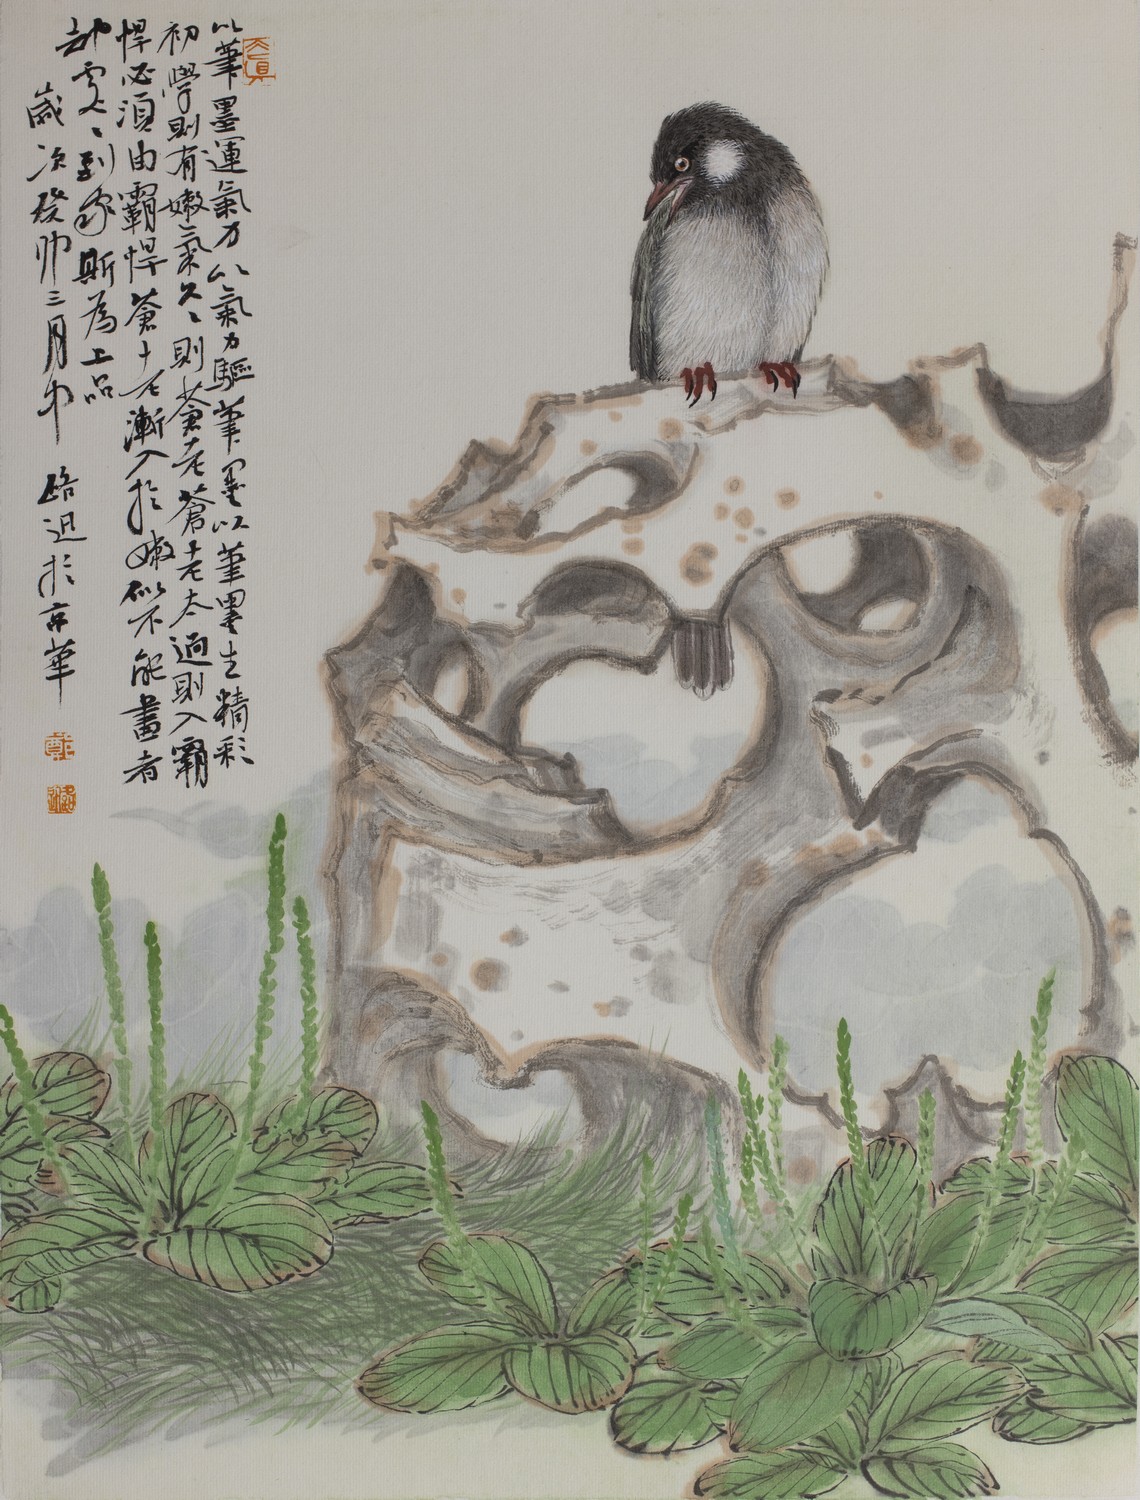 以筆墨運氣力以氣力驅筆墨以筆墨生精彩
初學則有嫩氣久久則蒼老蒼老太過則入霸
悍必須由霸悍蒼老漸入於嫩似不能畫者
却處處到家斯為上品
歲次癸卯三月中 於京華